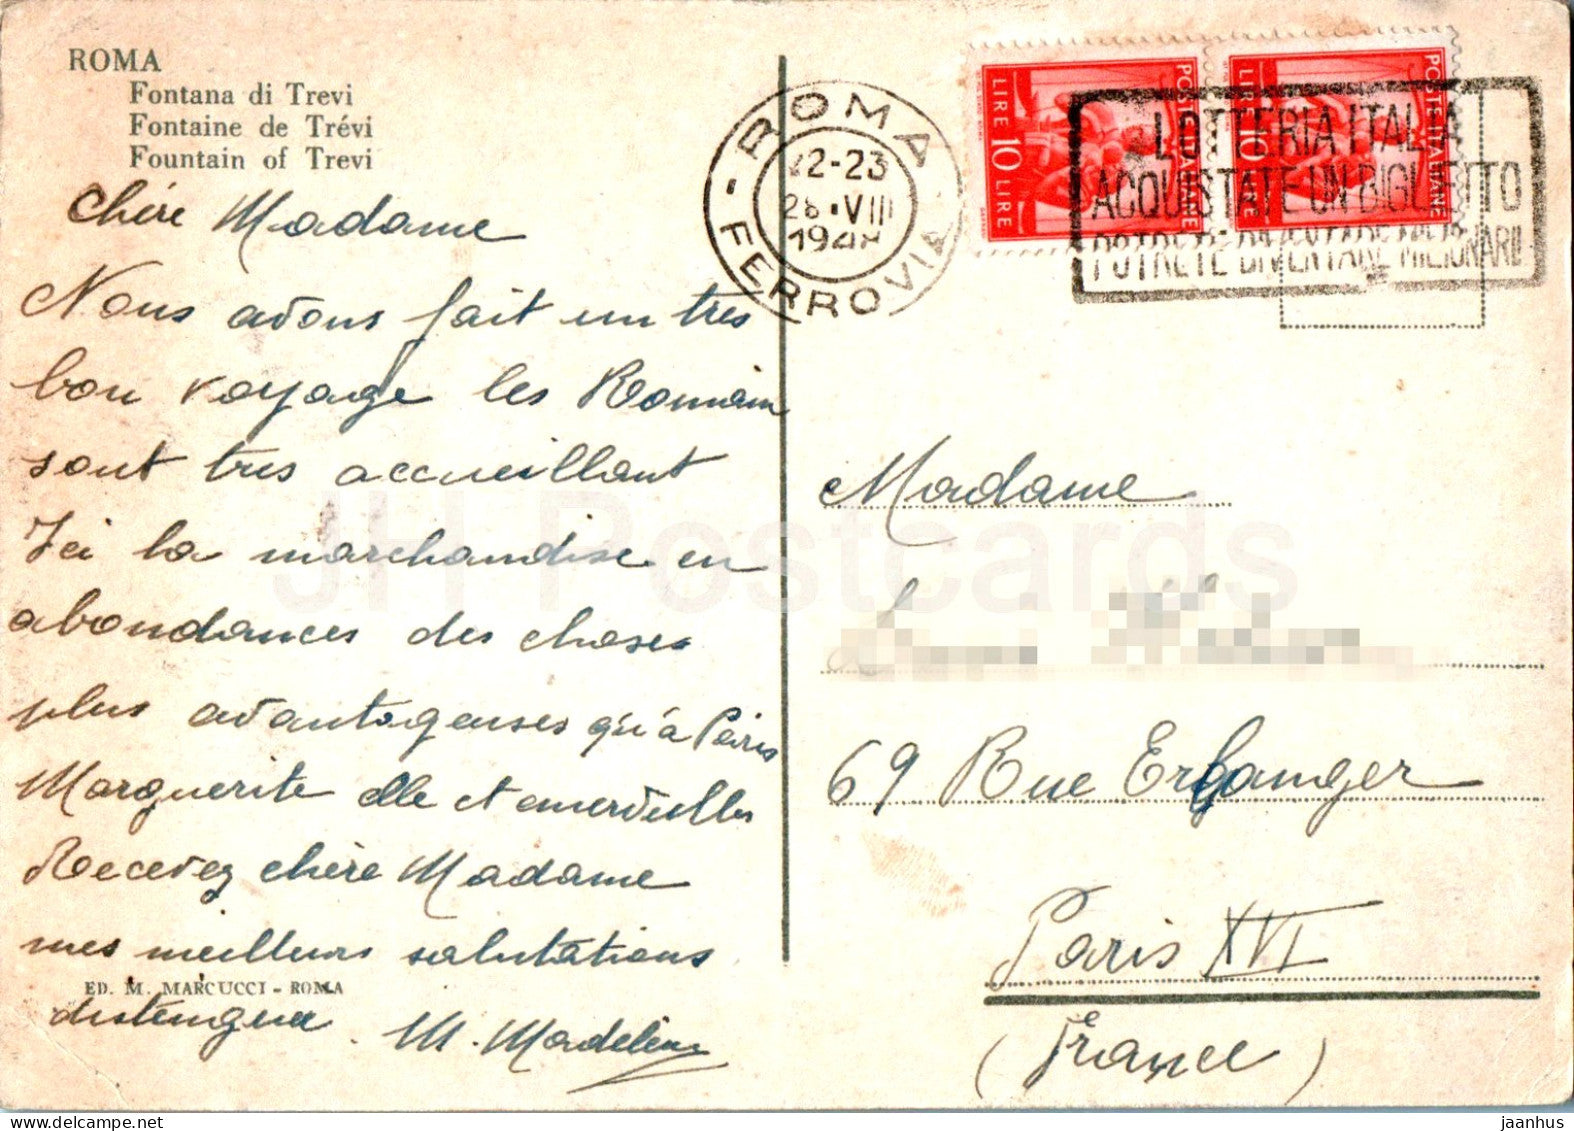 ROMA
Fontana di Trevi
Fontaine de Trévi
Fountain of Trevi
chère Madame
Nous avons fait un tres
bon voyage les Romain
sont tres accueillant
Ici la marchandise en
abondances des choses
plus avantageuses qu'à Paris
Marguerite elle et emerveilles
Recevez chère Madame
mes meilleurs salutations
ED. M. MARCUCCI - ROMA
distengua M. Madeleine
ROMA
22-23
28.VIII
1948
FERROVIA
POSTE ITALIANE
LIRE 10 LIRE
POSTE ITALIANE
LIRE 10 LIRE
LOTTERIA ITALIA
ACQUISTATE UN BIGLIETTO
POTRETE DIVENTARE MILIONARI!
Madame
69 Rue Erlanger
Paris XVI
(France)
JH Postcards
delcampe.net
jaanhus